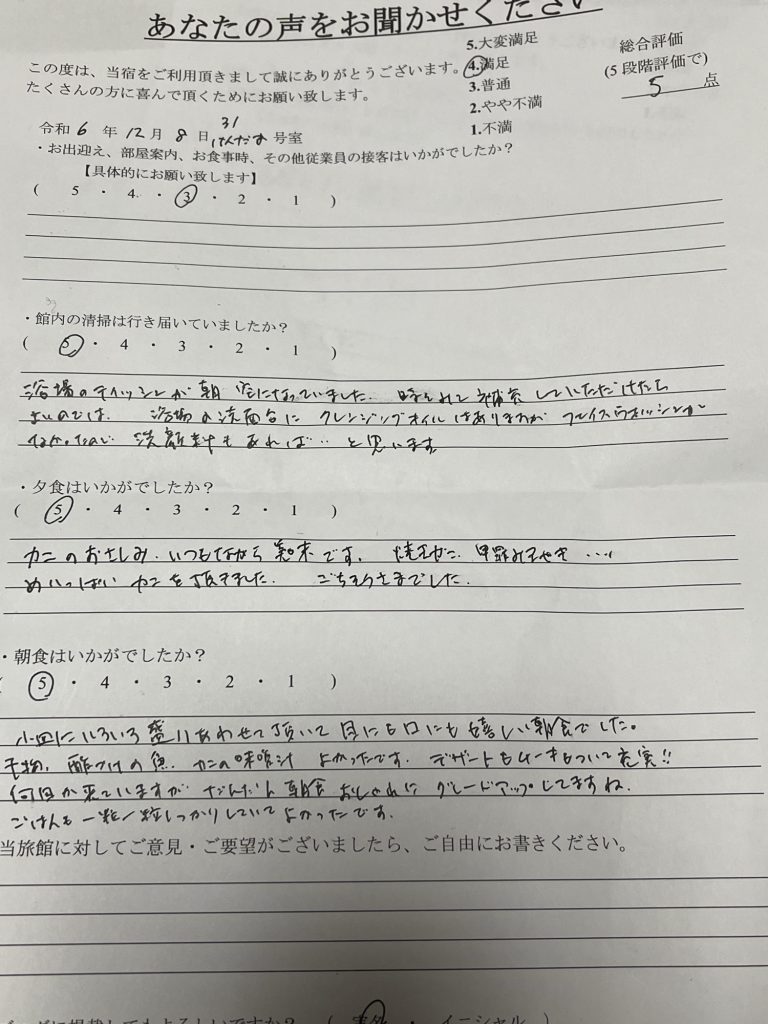 あなたの声をお聞かせください
この度は、当宿をご利用頂きまして誠にありがとうございます。
たくさんの方に喜んで頂くためにお願い致します。
5.大変満足
4.満足
3.普通
2.やや不満
1.不満
総合評価
(5段階評価で)
5 点
令和 6 年 12 月 8 日 31 号室
・お出迎え、部屋案内、お食事時、その他従業員の接客はいかがでしたか？
【具体的にお願い致します】
( 5 ・ 4 ・ 3 ・ 2 ・ 1 )
・館内の清掃は行き届いていましたか？
( 5 ・ 4 ・ 3 ・ 2 ・ 1 )
浴場のティッシュが朝 空になっていました. 時々見て補充していただけたら
よいのでは. 浴場の洗面台に クレンジングオイルはありますが フェイスウォッシュが
なかったので 洗顔料もあれば‥と思います
・夕食はいかがでしたか？
( 5 ・ 4 ・ 3 ・ 2 ・ 1 )
カニのおさしみ. いつもながら 美味です. 焼きがに. 甲羅みそやき ‥‥
めいっぱい カニを頂きました. ごちそうさまでした.
・朝食はいかがでしたか？
( 5 ・ 4 ・ 3 ・ 2 ・ 1 )
小皿にいろいろ盛りあわせて頂いて 目にも口にも嬉しい朝食でした。
干物. 酢づけの魚. カニの味噌汁 よかったです. デザートもケーキもついて充実!!
何回か来ていますが だんだん 朝食 おしゃれに グレードアップしてますね.
ごはんも 一粒一粒しっかりしていて よかったです.
当旅館に対してご意見・ご要望がございましたら、ご自由にお書きください。
に掲載してもよろしいですか？ ( ・ イニシャル )